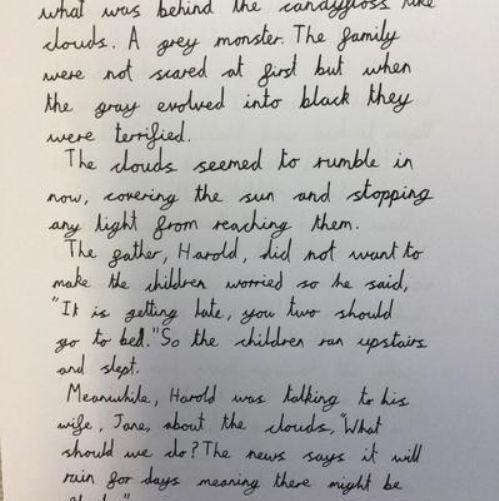 what was behind the candyfloss like
clouds. A grey monster. The family
were not scared at first but when
the gray evolved into black they
were terrified.
The clouds seemed to rumble in
now, covering the sun and stopping
any light from reaching them.
The father, Harold, did not want to
make the children worried so he said,
"It is getting late, you two should
go to bed." So the children ran upstairs
and slept.
Meanwhile, Harold was talking to his
wife, Jane, about the clouds, "What
should we do? The news says it will
rain for days meaning there might be